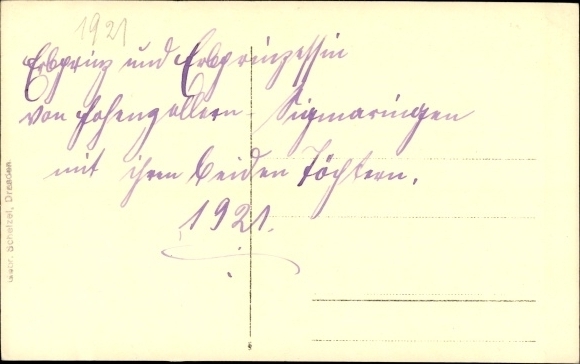 1921
Erbprinz und Erbprinzessin
von Hohenzollern Sigmaringen
mit ihren beiden Töchtern.
1921.
Gebr. Schelzel, Dresden